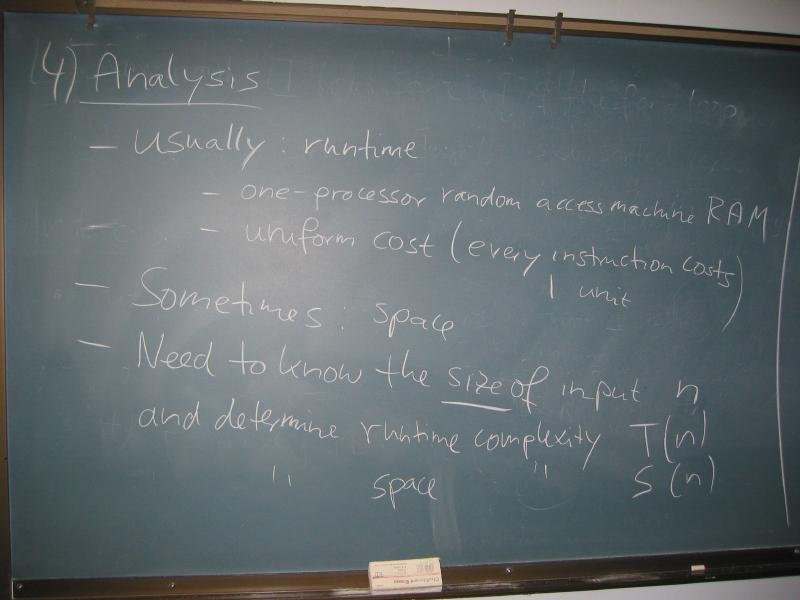 4) Analysis
- usually : runtime
- one-processor random access machine RAM
- uniform cost (every instruction costs
1 unit)
- Sometimes : space
- Need to know the size of input n
and determine runtime complexity T(n)
" space " S(n)